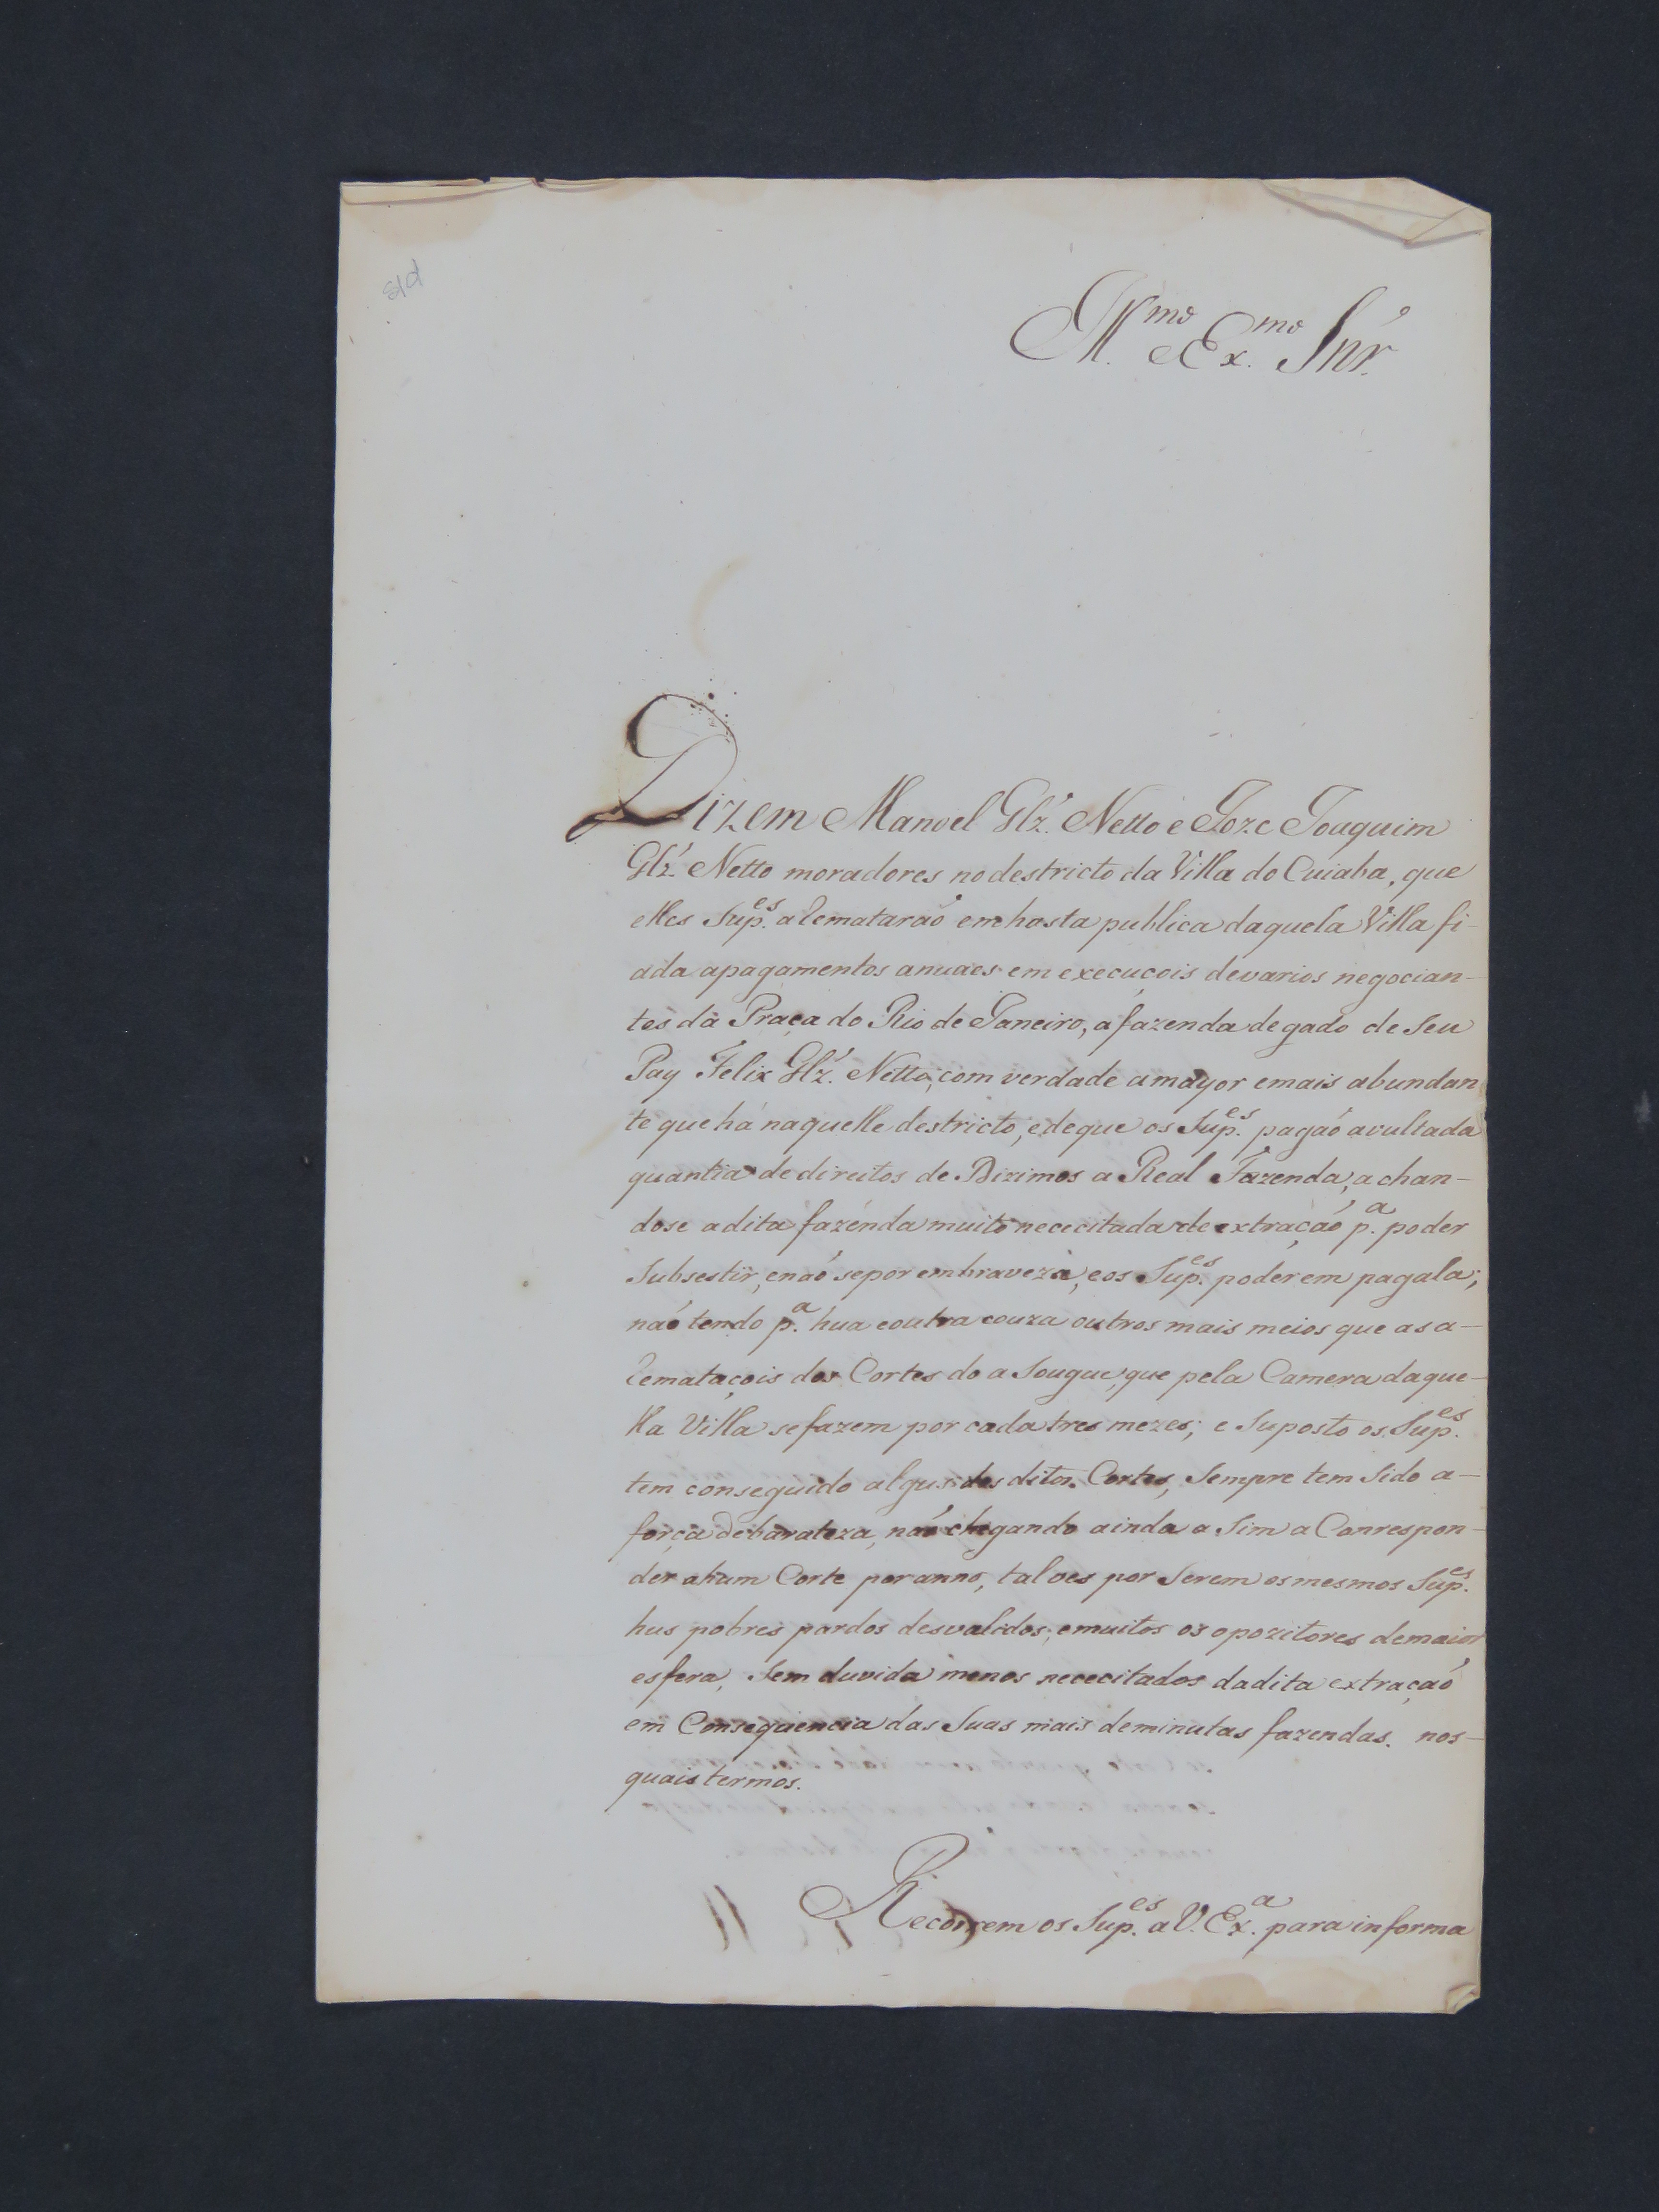 Ill.mo e Ex.mo Snr.
Dizem Manoel Glz. Netto e Joze Joaquim
Glz. Netto moradores no destricto da Villa do Cuiaba, que
elles Sup.es aRematarão em hasta publica daquela Villa fi-
ada a pagamentos anuaes em execuçois de varios negocian-
tes da Praça do Rio de Janeiro, a fazenda de gado de seu
Pay Felix Glz. Netto, com verdade a mayor e mais abundan
te que há naquelle destricto, e de que os Sup.es pagão avultada
quantia de direitos de Dizimos a Real Fazenda, achan-
dose a dita fazenda muito nececitada de extração p.a poder
Subsestir, e não se por em braveza, e os Sup.es poderem pagala;
não tendo p.a hua e outra couza outros mais meios que as a-
Remataçois dos Cortes do asougue, que pela Camera daque-
lla Villa se fazem por cada tres mezes; e Suposto os Sup.es
tem conseguido algus dos ditos Cortes, Sempre tem Sido a-
força de barateza, não chegando ainda a Sim a Conrespon-
der ahum Corte por anno, talves por Serem os mesmos Sup.es
hus pobres pardos desvalidos; e muitos os opozitores de maior
esfera, Sem duvida menos nececitados da dita extração
em Consequencia das Suas mais deminutas fazendas. nos-
quais termos.
Recorrem os Sup.es a V. Ex.a para informa